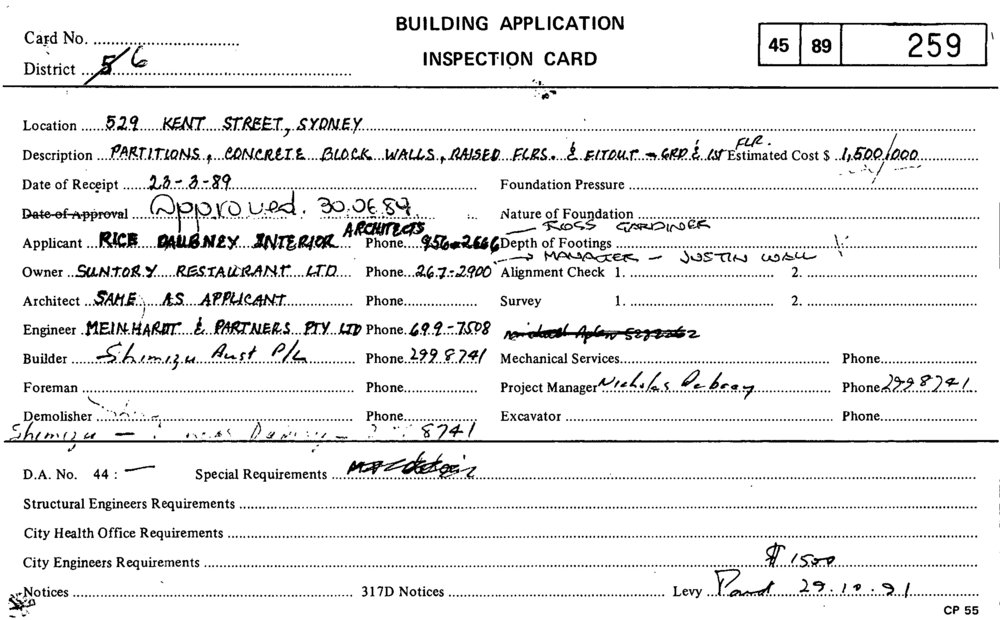 BUILDING APPLICATION
INSPECTION CARD
Card No.
District 5 6
45 89 259
Location 529 KENT STREET, SYDNEY
Description PARTITIONS, CONCRETE BLOCK WALLS, RAISED FLRS. & FITOUT - GRD & 1ST FLR. Estimated Cost $ 1,500,000
Date of Receipt 23-3-89 Foundation Pressure
Date of Approval Approved. 30.06.89. Nature of Foundation
Applicant RICE DAUBNEY INTERIOR ARCHITECTS Phone 956-2666 — ROSS GARDINER
Depth of Footings
→ MANAGER - JUSTIN WALL
Owner SUNTORY RESTAURANT LTD Phone 267-2900 Alignment Check 1. 2.
Architect SAME AS APPLICANT Phone Survey 1. 2.
Engineer MEINHARDT & PARTNERS PTY LTD Phone 699-7508
Builder Shimizu Aust P/L Phone 299 8741 Mechanical Services Phone
Foreman Phone Project Manager Nicholas Phone 299 8741
Demolisher Phone Excavator Phone
Shimizu — 8741
D.A. No. 44 : — Special Requirements
Structural Engineers Requirements
City Health Office Requirements
City Engineers Requirements $ 1500
Notices 317D Notices Levy Paid 29.10.91
CP 55